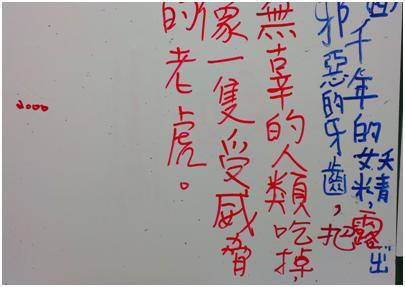 千年的妖精，露出
邪惡的牙齒，把
無辜的人類吃掉，
像一隻受威脅
的老虎。
2000